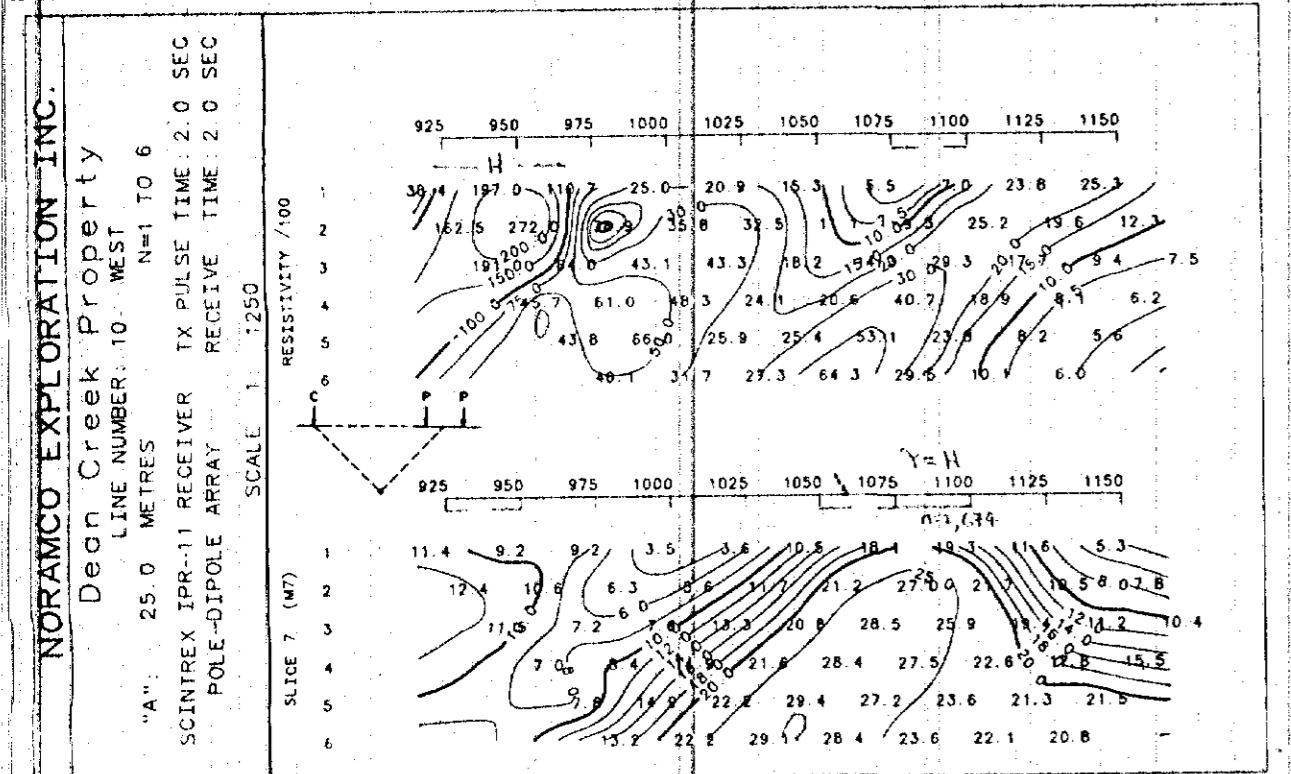 NORAMCO EXPLORATION INC.
Dean Creek Property
LINE NUMBER: 10 WEST
"A": 25.0 METRES N=1 TO 6
SCINTREX IPR-11 RECEIVER TX PULSE TIME: 2.0 SEC
POLE-DIPOLE ARRAY RECEIVE TIME: 2.0 SEC
SCALE 1 1250
RESISTIVITY /100
925 950 975 1000 1025 1050 1075 1100 1125 1150
H
1 38.4 197.0 110.7 25.0 20.9 15.3 5.5 7.0 23.8 25.3
2 162.5 272.0 35.8 32.5 25.2 19.6 12.3
3 43.1 43.3 18.2 29.3 9.4 7.5
4 45.7 61.0 48.3 24.1 20.6 40.7 18.9 8.1 6.2
5 43.8 25.9 25.4 53.1 23.8 8.2 5.6
6 31.7 27.3 64.3 29.6 10.1 6.0
C P P
SLICE 7 (M7)
Y=H
925 950 975 1000 1025 1050 1075 1100 1125 1150
1 11.4 9.2 9.2 3.5 3.6 10.5 19.3 11.6 5.3
2 12.4 10.6 6.3 8.6 11.7 21.2 27.0 21.7 10.5 8.0 7.8
3 7.2 13.3 20.8 28.5 25.9 11.2 10.4
4 7.0 8.4 21.6 28.4 27.5 22.6 12.8 15.5
5 7.8 14.9 22.2 29.4 27.2 23.6 21.3 21.5
6 13.2 22.2 29.1 28.4 23.6 22.1 20.8